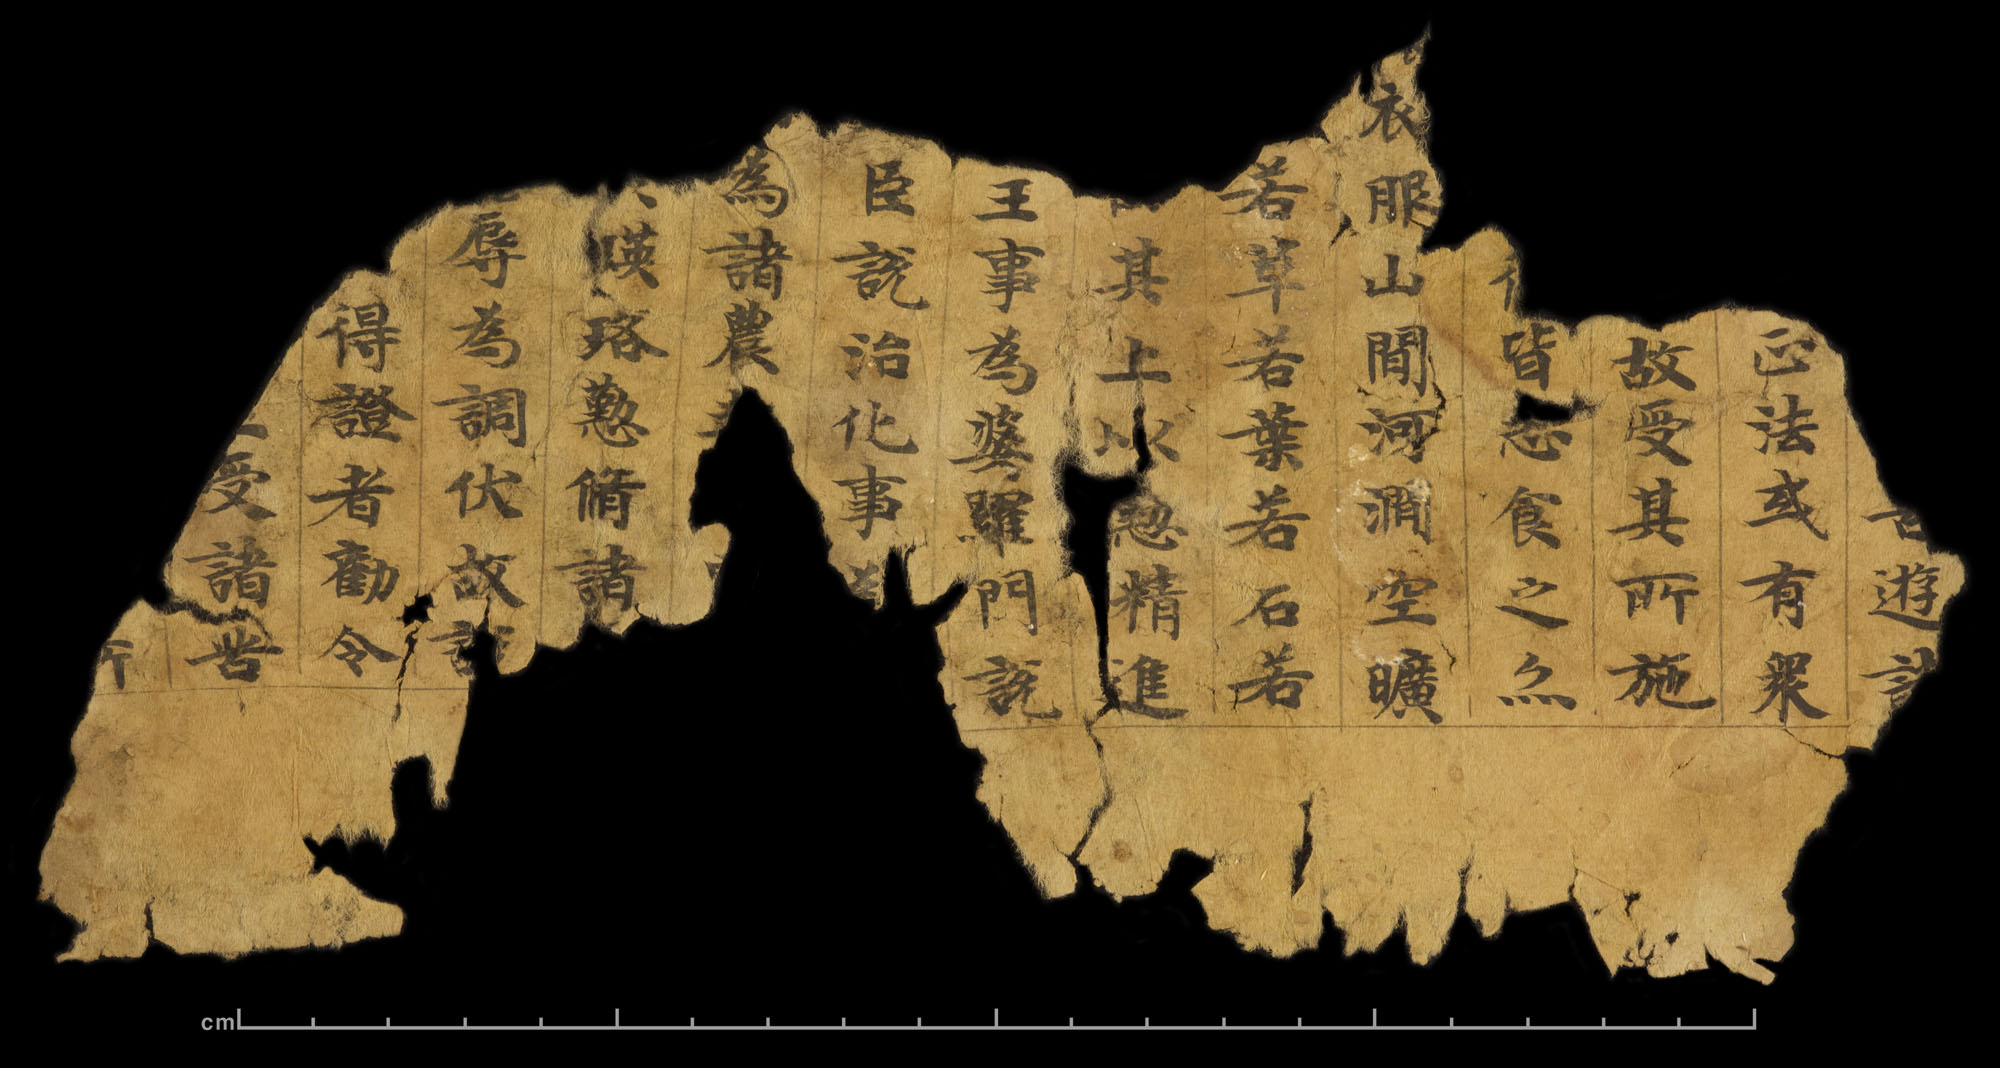 遊
正法或有衆
故受其所施
皆忘食之
衣服山間河澗空曠
若草若葉若石若
其上以忍精進
王事為婆羅門説
臣説治化事
為諸農
瑛珞懃脩諸
辱為調伏故
得證者勸令
受諸苦
所